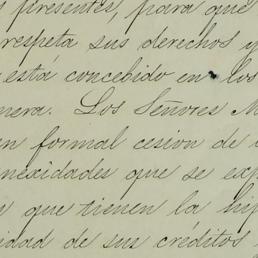 s presentes, para que
respeta sus derechos y
está concebido en los
mera. Los Señores M
en formal cesion de
nexidades que se exp
n que tienen la hip
idad de sus créditos